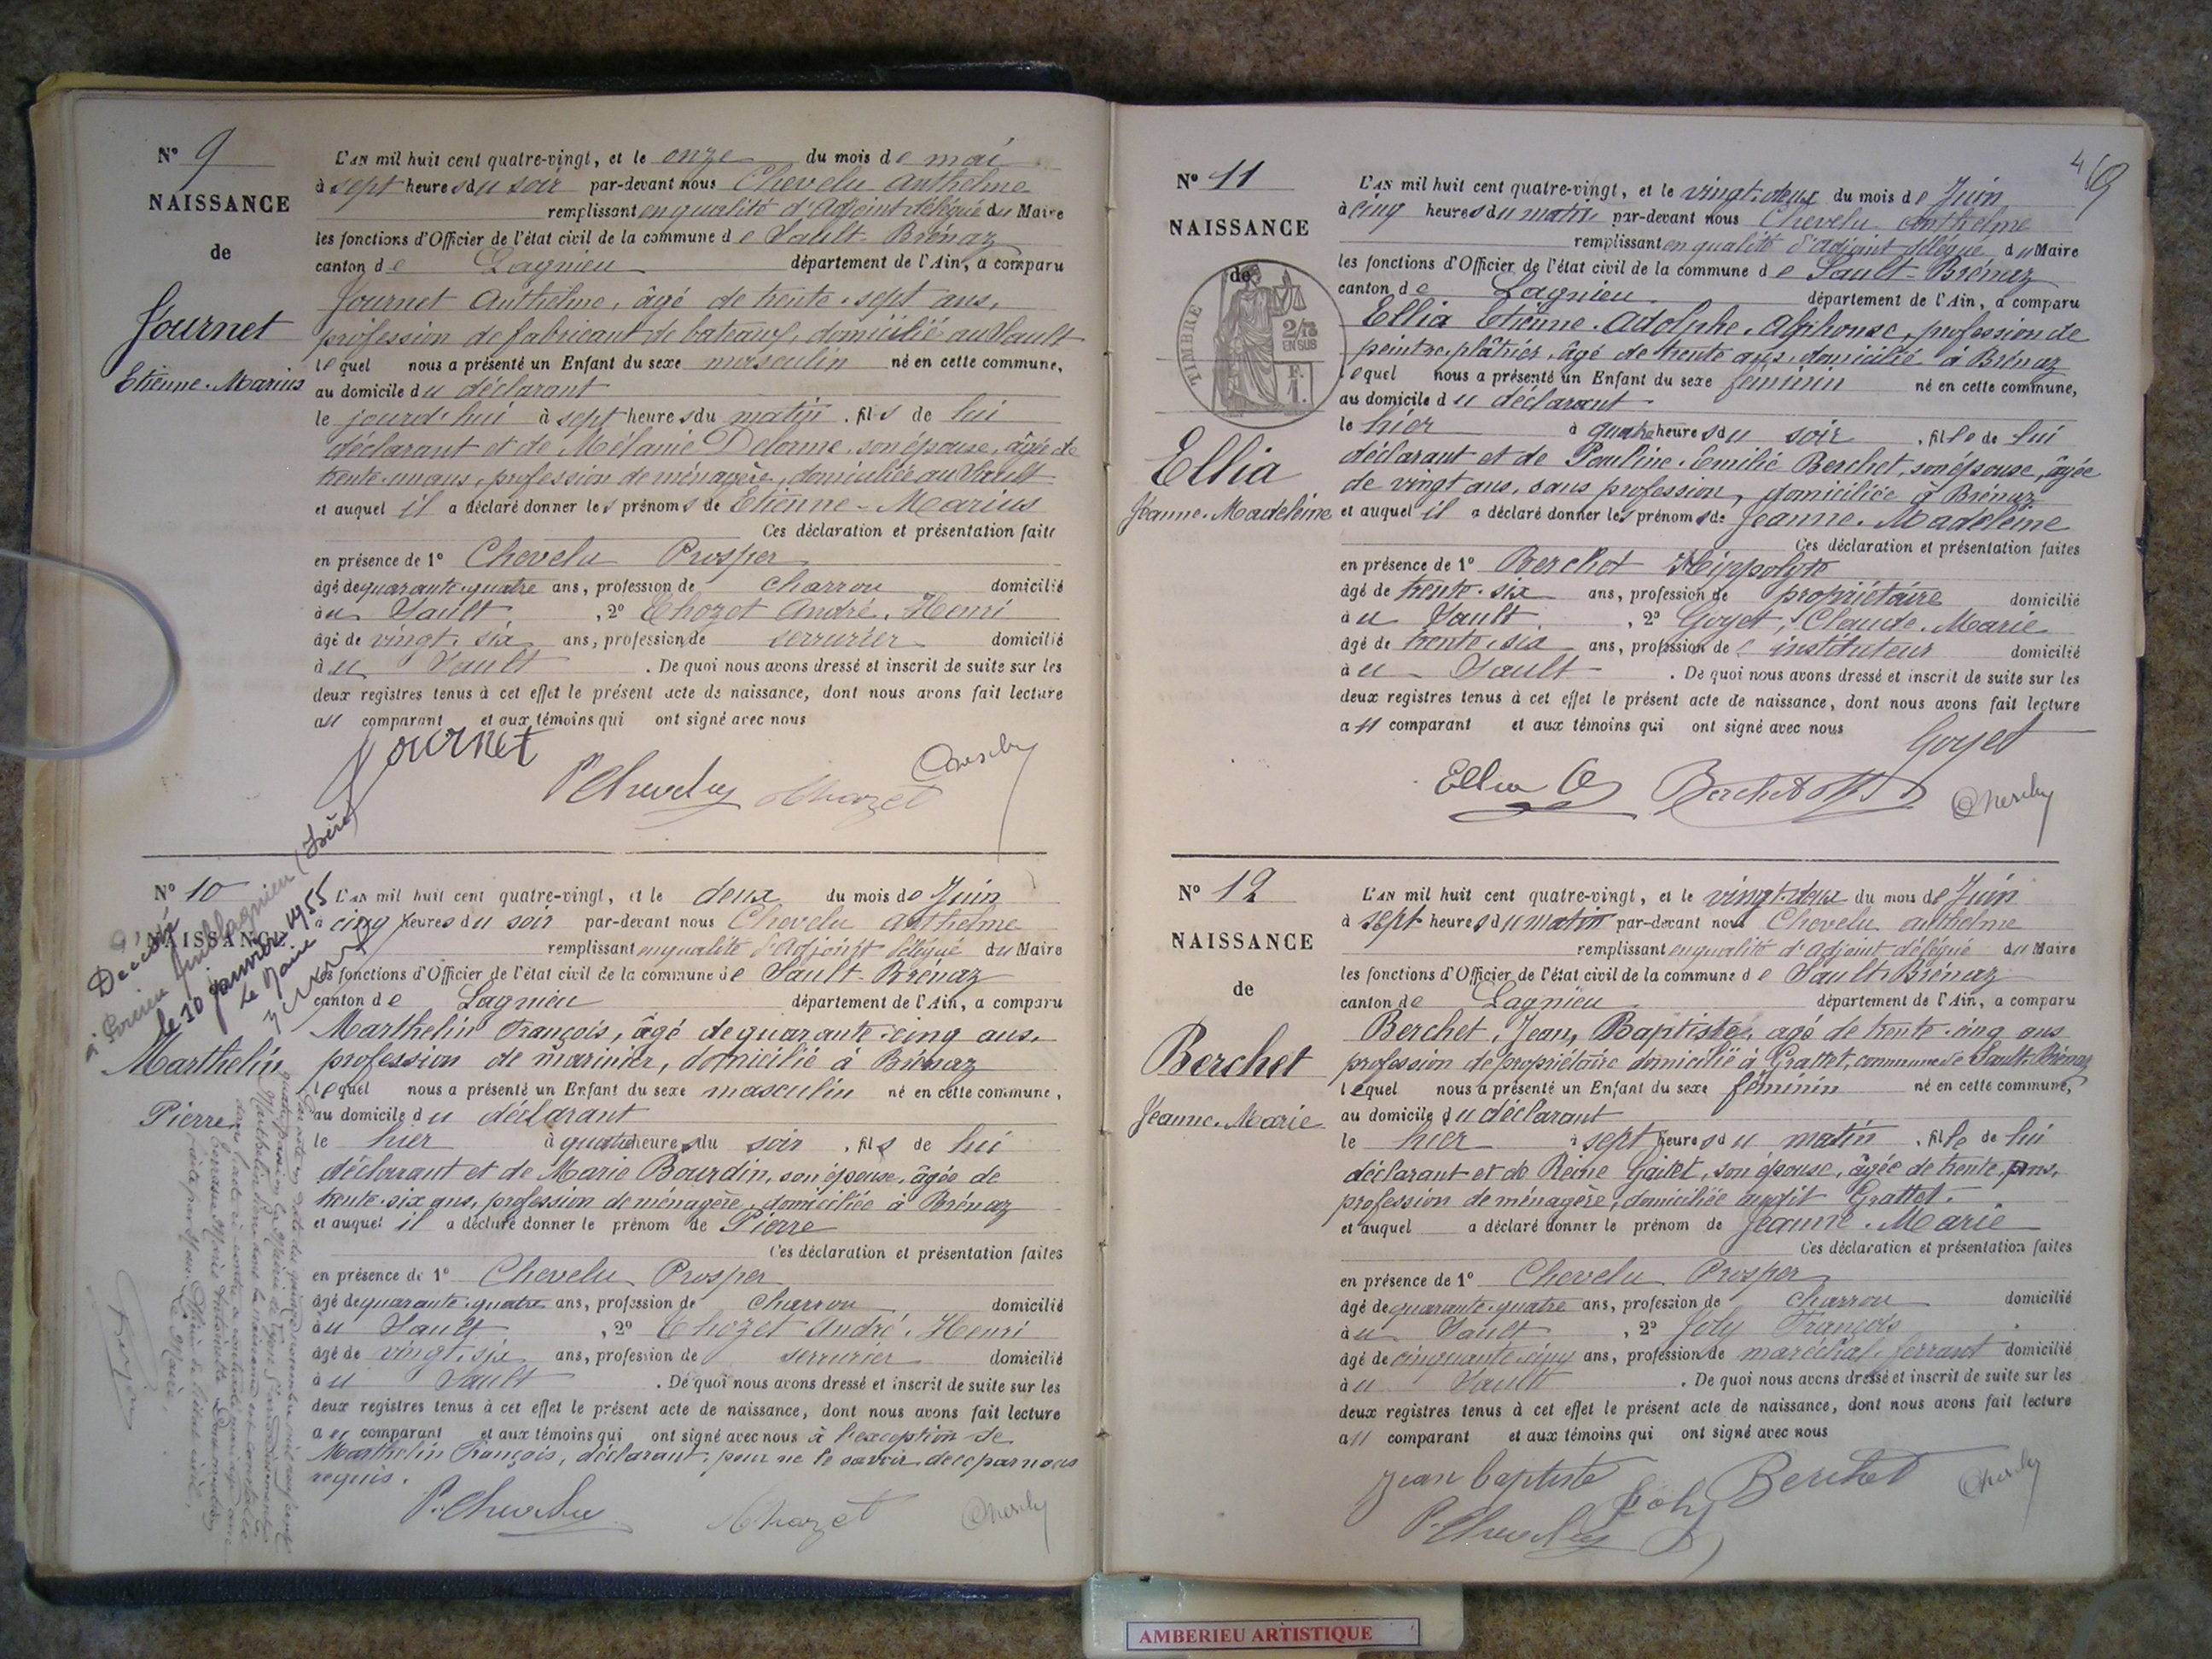 N° 9
NAISSANCE
de
Journet
Etienne-Marius
L'AN mil huit cent quatre-vingt, et le onze du mois de mai
à sept heures du soir par-devant nous Chevelu Anthelme
remplissant en qualité d'Adjoint délégué du Maire
les fonctions d'Officier de l'état civil de la commune de Sault-Brénaz
canton de Lagnieu département de l'Ain, a comparu
Journet Anthelme, âgé de trente-sept ans,
profession de fabricant de bateaux, domicilié au Sault
lequel nous a présenté un Enfant du sexe masculin né en cette commune,
au domicile du déclarant
le jourd'hui à sept heures du matin, fils de lui
déclarant et de Mélanie Delorme, son épouse, âgée de
trente-un ans, profession de ménagère, domiciliée au Sault
et auquel il a déclaré donner les prénoms de Etienne-Marius
Ces déclaration et présentation faites
en présence de 1° Chevelu Prosper
âgé de quarante-quatre ans, profession de charron domicilié
au Sault, 2° Chozet André-Henri
âgé de vingt-six ans, profession de serrurier domicilié
au Sault. De quoi nous avons dressé et inscrit de suite sur les
deux registres tenus à cet effet le présent acte de naissance, dont nous avons fait lecture
au comparant et aux témoins qui ont signé avec nous
Journet
P. Chevelu Chozet
N° 10
NAISSANCE
Décédé
le 10 janvier 1955
Le Maire
Marthelin
Pierre
L'AN mil huit cent quatre-vingt, et le deux du mois de Juin
à cinq heures du soir par-devant nous Chevelu Anthelme
remplissant en qualité d'Adjoint délégué du Maire
les fonctions d'Officier de l'état civil de la commune de Sault-Brénaz
canton de Lagnieu département de l'Ain, a comparu
Marthelin François, âgé de quarante-cinq ans,
profession de marinier, domicilié à Brénaz
lequel nous a présenté un Enfant du sexe masculin né en cette commune,
au domicile du déclarant
le hier à quatre heures du soir, fils de lui
déclarant et de Marie Bourdin, son épouse, âgée de
trente-six ans, profession de ménagère, domiciliée à Brénaz
et auquel il a déclaré donner le prénom de Pierre
Ces déclaration et présentation faites
en présence de 1° Chevelu Prosper
âgé de quarante-quatre ans, profession de charron domicilié
au Sault, 2° Chozet André-Henri
âgé de vingt-six ans, profession de serrurier domicilié
au Sault. De quoi nous avons dressé et inscrit de suite sur les
deux registres tenus à cet effet le présent acte de naissance, dont nous avons fait lecture
au comparant et aux témoins qui ont signé avec nous à l'exception de
Marthelin François, déclarant, pour ne le savoir de ce par nous
requis.
P. Chevelu Chozet
N° 11
NAISSANCE
de
TIMBRE
2/10
EN SUS
Ellia
Jeanne-Madeleine
L'AN mil huit cent quatre-vingt, et le vingt-deux du mois de Juin
à cinq heures du matin par-devant nous Chevelu Anthelme
remplissant en qualité d'adjoint délégué du Maire
les fonctions d'Officier de l'état civil de la commune de Sault-Brénaz
canton de Lagnieu département de l'Ain, a comparu
Ellia Etienne-Adolphe-Alphonse, profession de
peintre-plâtrier, âgé de trente ans, domicilié à Brénaz
lequel nous a présenté un Enfant du sexe féminin né en cette commune,
au domicile du déclarant
le hier à quatre heures du soir, fille de lui
déclarant et de Pauline-Emilie Berchet, son épouse, âgée
de vingt ans, sans profession, domiciliée à Brénaz
et auquel il a déclaré donner les prénoms de Jeanne-Madeleine
Ces déclaration et présentation faites
en présence de 1° Berchet Hippolyte
âgé de trente-six ans, profession de propriétaire domicilié
au Sault, 2° Goyet, Claude-Marie
âgé de trente-six ans, profession de instituteur domicilié
au Sault. De quoi nous avons dressé et inscrit de suite sur les
deux registres tenus à cet effet le présent acte de naissance, dont nous avons fait lecture
au comparant et aux témoins qui ont signé avec nous
Goyet
Ellia Berchet
N° 12
NAISSANCE
de
Berchet
Jeanne-Marie
L'AN mil huit cent quatre-vingt, et le vingt-deux du mois de Juin
à sept heures du matin par-devant nous Chevelu anthelme
remplissant en qualité d'Adjoint délégué du Maire
les fonctions d'Officier de l'état civil de la commune de Sault-Brénaz
canton de Lagnieu département de l'Ain, a comparu
Berchet, Jean, Baptiste, âgé de trente-cinq ans
profession de propriétaire domicilié à Grattet, commune de Sault-Brénaz
lequel nous a présenté un Enfant du sexe féminin né en cette commune,
au domicile du déclarant
le hier à sept heures du matin, fille de lui
déclarant et de Reine Gaillet, son épouse, âgée de trente ans,
profession de ménagère, domiciliée audit Grattet.
et auquel a déclaré donner le prénom de Jeanne-Marie
Ces déclaration et présentation faites
en présence de 1° Chevelu Prosper
âgé de quarante-quatre ans, profession de charron domicilié
au Sault, 2° Joly François
âgé de cinquante-cinq ans, profession de maréchal-ferrant domicilié
au Sault. De quoi nous avons dressé et inscrit de suite sur les
deux registres tenus à cet effet le présent acte de naissance, dont nous avons fait lecture
au comparant et aux témoins qui ont signé avec nous
Jean baptiste Joly Berchet
P. Chevelu
AMBERIEU ARTISTIQUE